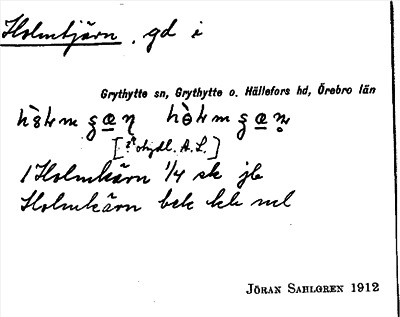 Holmtjärn, gd i
Grythytte sn, Grythytte o. Hällefors hd, Örebro län
[?otydl. A.L.]
1 Holmkärn 1/4 sk jb
Holmkärn bek
Jöran Sahlgren 1912